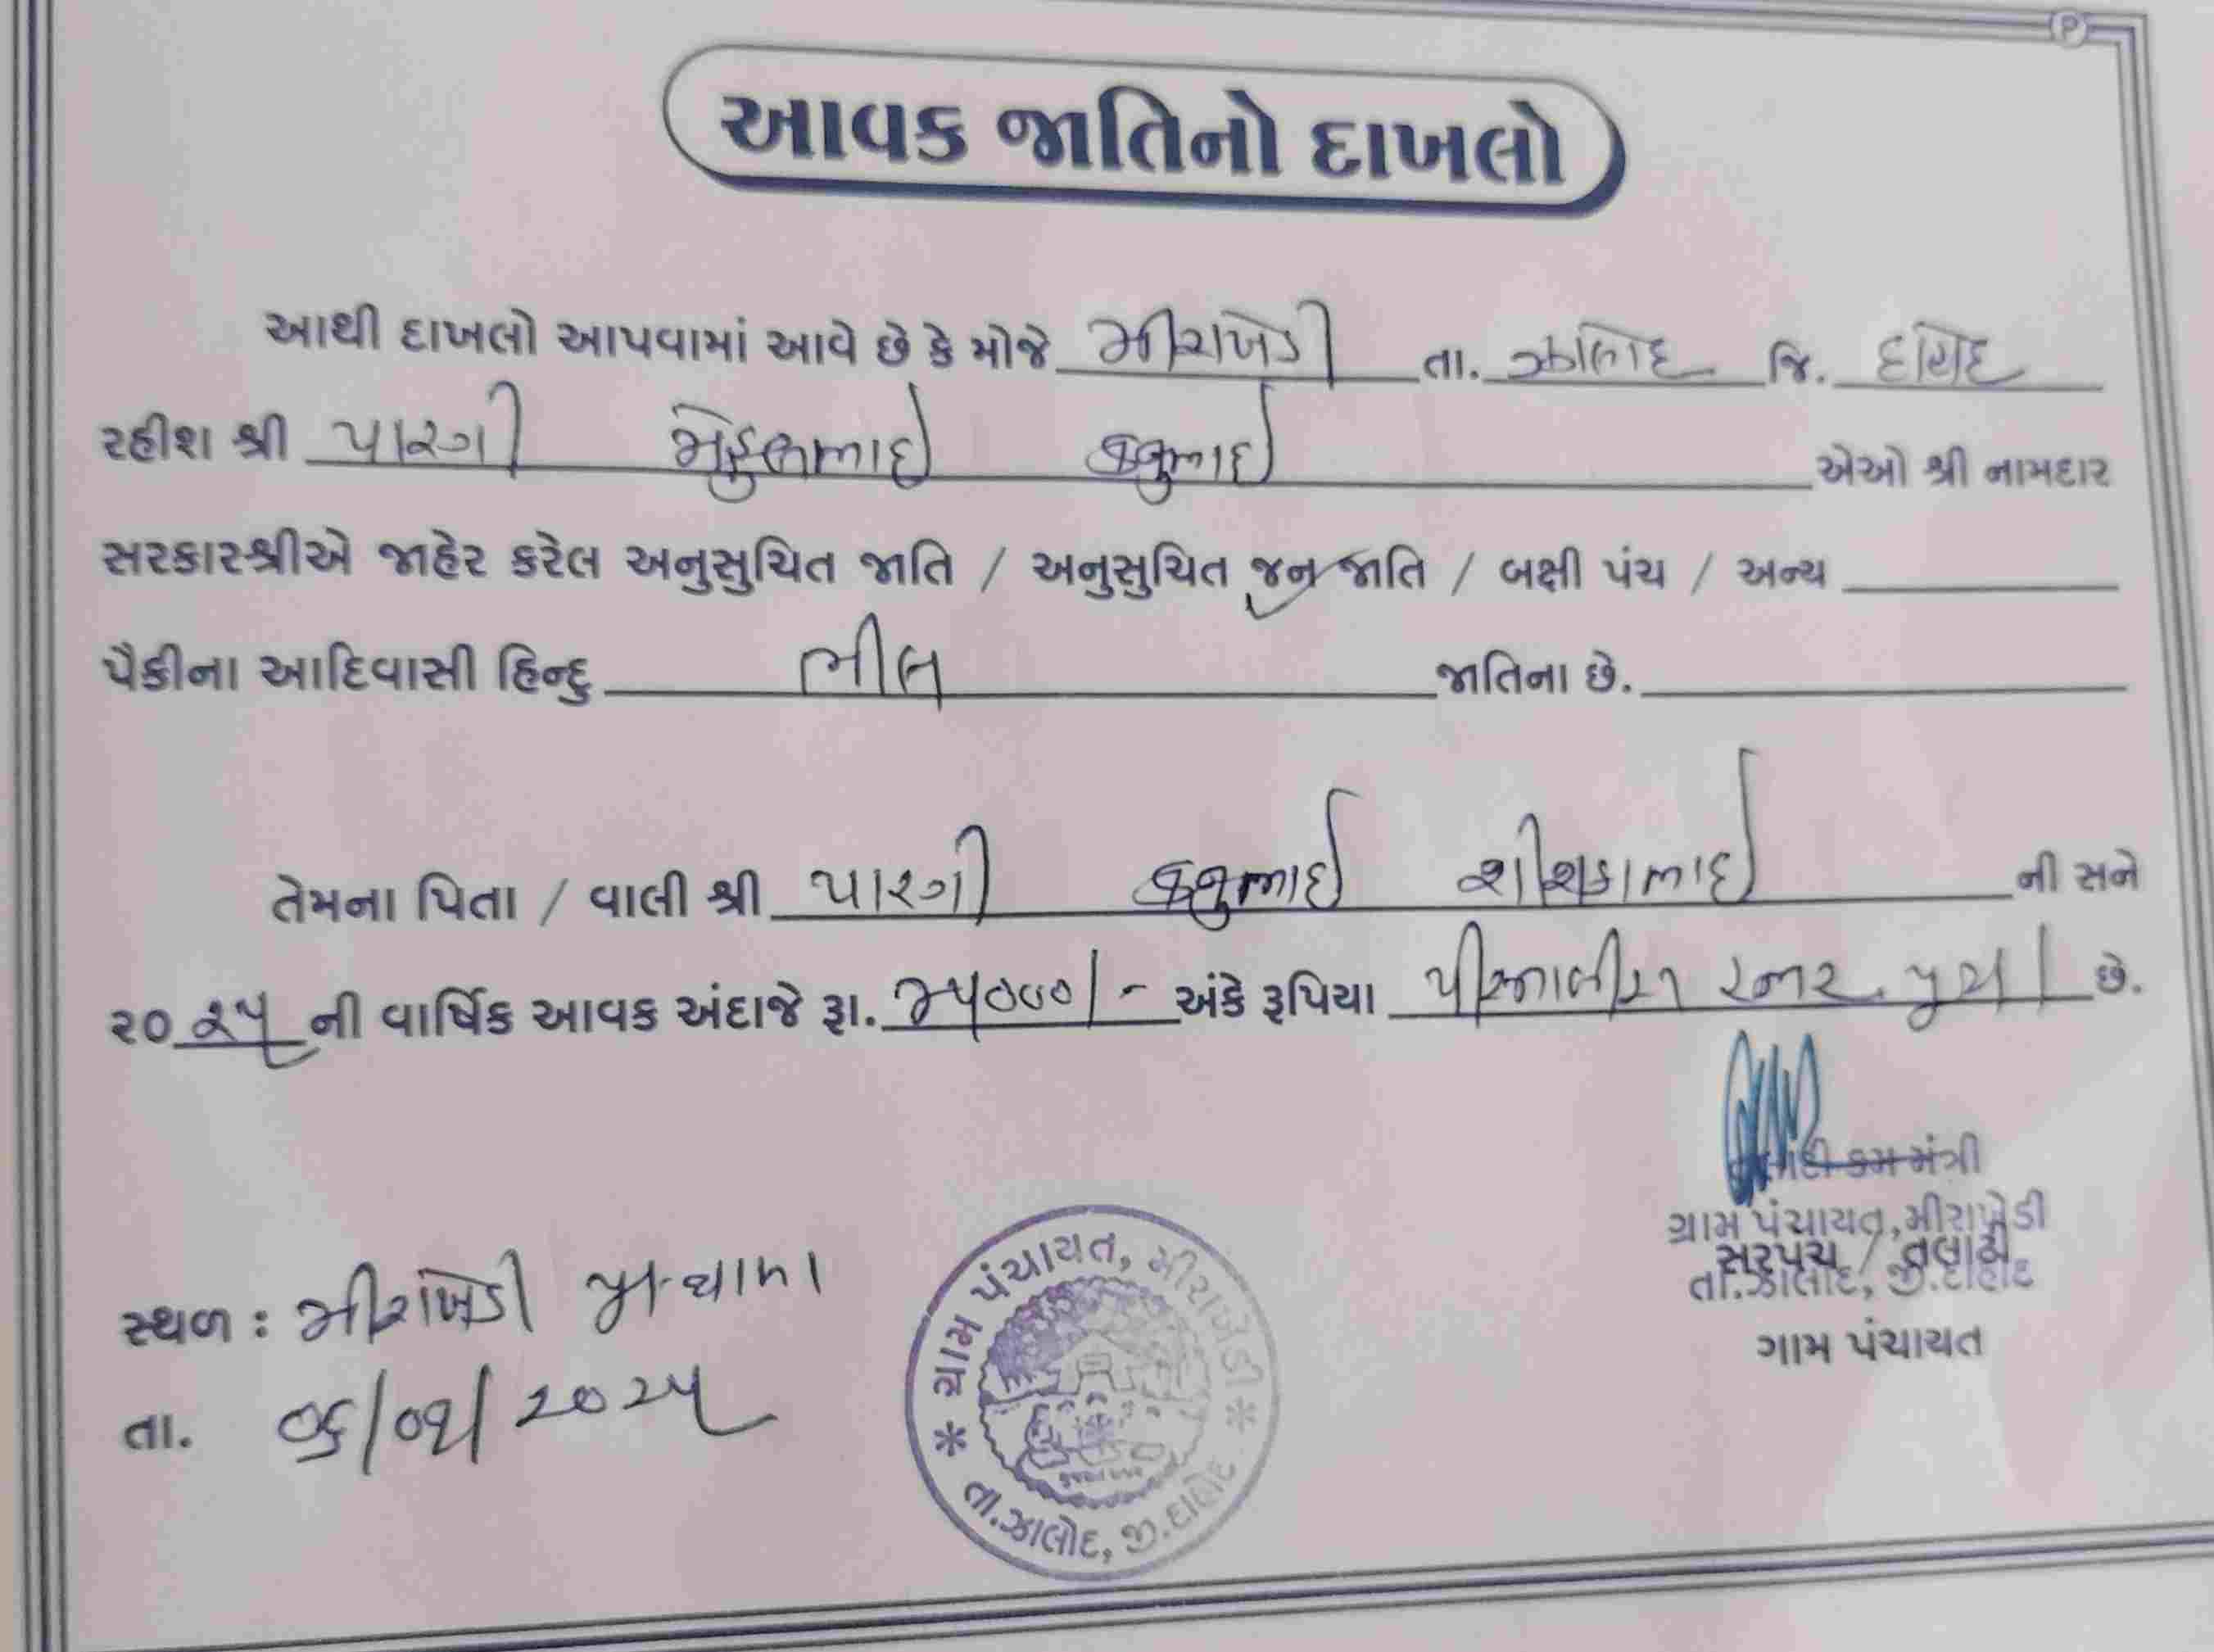 આવક જાતિનો દાખલો
આથી દાખલો આપવામાં આવે છે કે મોજે મીરાખેડી તા. ઝાલોદ જિ. દાહોદ
રહીશ શ્રી પારગી મેહુલભાઈ કનુભાઈ એઓ શ્રી નામદાર
સરકારશ્રીએ જાહેર કરેલ અનુસુચિત જાતિ / અનુસુચિત જન જાતિ / બક્ષી પંચ / અન્ય
પૈકીના આદિવાસી હિન્દુ ભીલ જાતિના છે.
તેમના પિતા / વાલી શ્રી પારગી કનુભાઈ ની સને
૨૦ ૨૫ ની વાર્ષિક આવક અંદાજે રૂા. ૪૫૦૦૦/- અંકે રૂપિયા પુરા છે.
કમ મંત્રી
ગ્રામ પંચાયત, મીરાખેડી
સરપંચ / તલાટી
તા.ઝાલોદ, જી.દાહોદ
ગામ પંચાયત
સ્થળ : મીરાખેડી
તા. ૦૬/૦૧/૨૦૨૫
ગ્રામ પંચાયત, મીરાખેડી
* તા.ઝાલોદ, જી.દાહોદ *